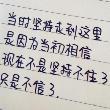 当时坚持走到这里
是因为当初相信
现在不是坚持不住了
只是不信了.